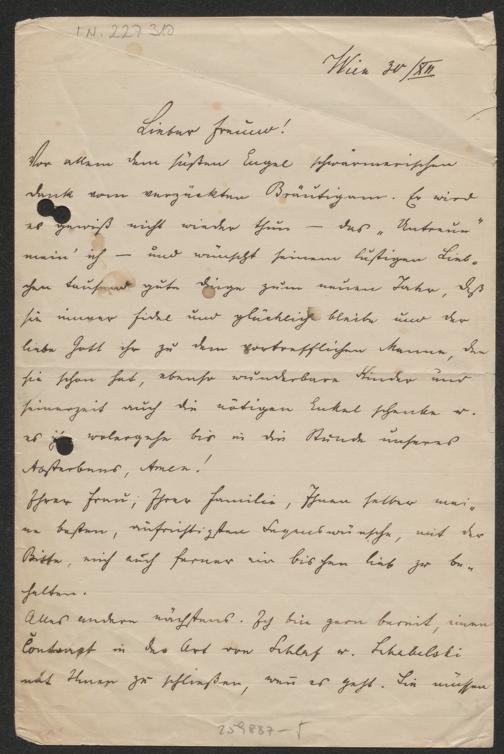 I.N. 227 310
Wien 30/XII
Lieber Freund!
Vor allem dem süßen Engel schwärmerischen
Dank vom verzückten Bräutigam. Er wird
es gewiß nicht wieder thun – das „Untreue"
mein' ich – und wünscht seinem lustigen Lieb-
chen tausend gute Dinge zum neuen Jahr, daß
sie immer fidel und glücklich bleibe und der
liebe Gott ihr zu dem vortrefflichen Manne, den
sie schon hat, ebenso wunderbare Kinder und
seinerzeit auch die nötigen Enkel schenke u.
es ihr wolergehe bis in die Stunde unseres
Absterbens, Amen!
Ihrer Frau, Ihrer Familie, Ihnen selber mei-
ne besten, aufrichtigsten Segenswünsche, mit der
Bitte, mich auch ferner ein bischen lieb zu be-
halten.
Alles andere nächstens. Ich bin gern bereit, einen
Contract in der Art von Schlaf u.
mit Ihnen zu schließen, wenn es geht. Sie müssen
259887-5